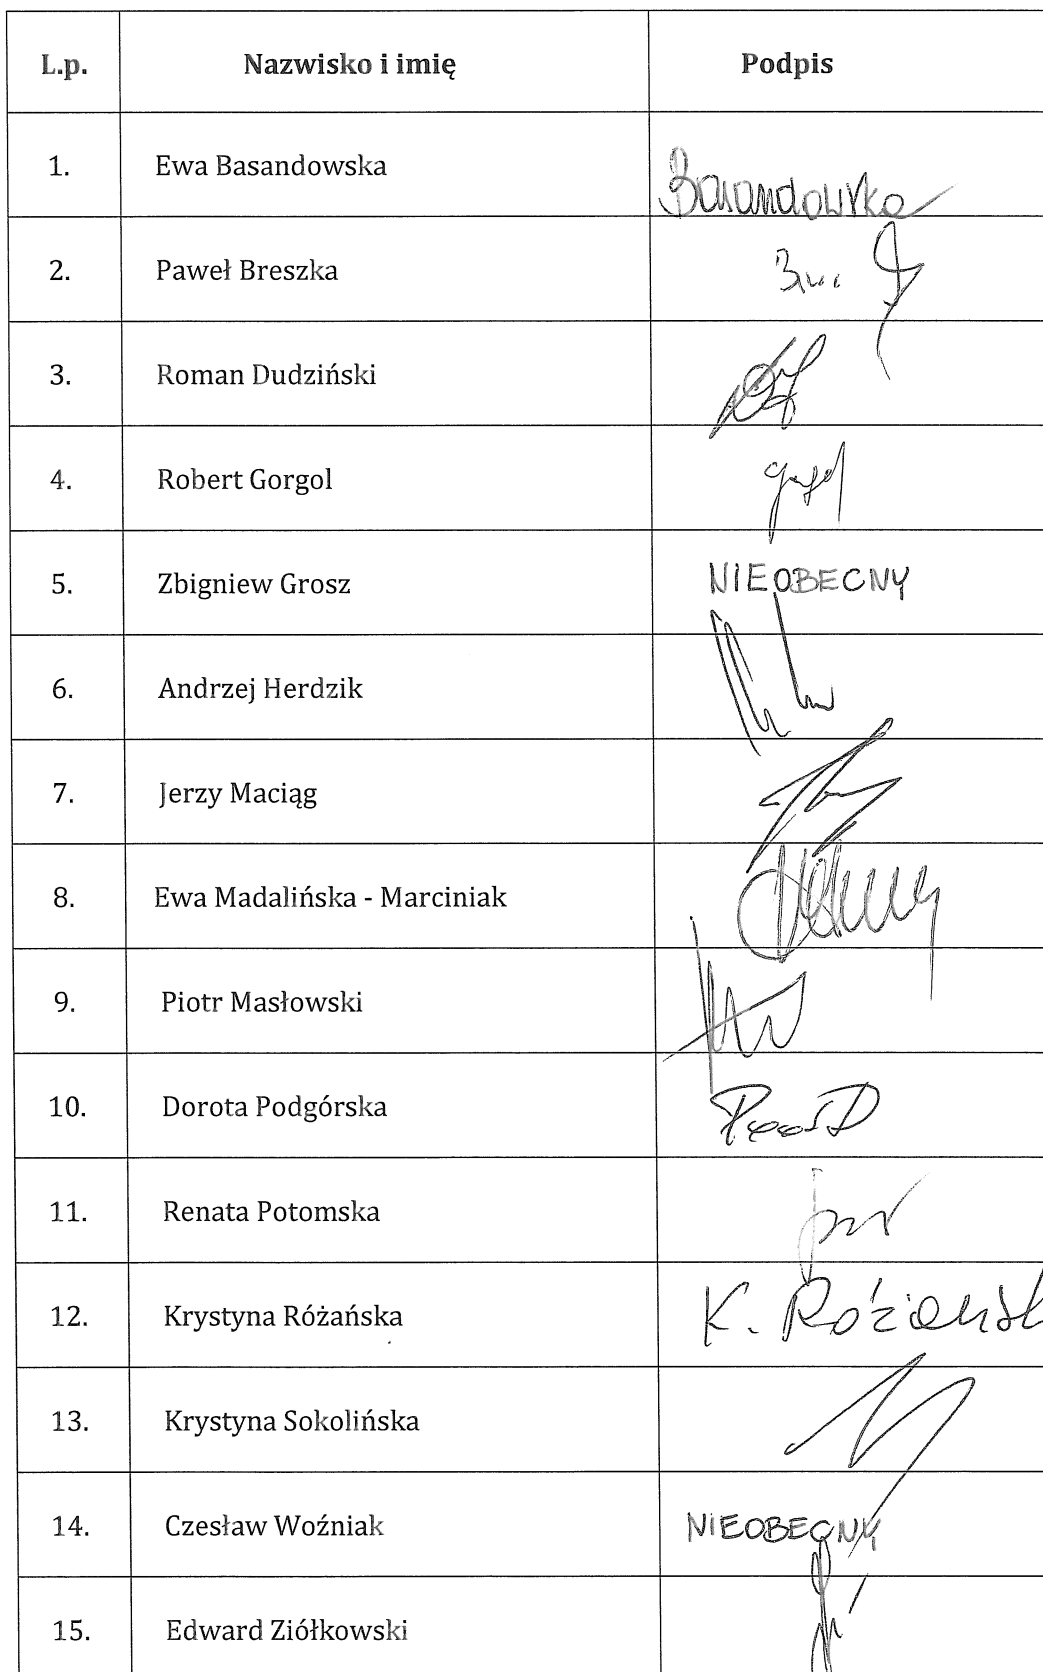 L.p. Nazwisko i imię Podpis
1. Ewa Basandowska Basandowska
2. Paweł Breszka
3. Roman Dudziński
4. Robert Gorgol
5. Zbigniew Grosz NIEOBECNY
6. Andrzej Herdzik
7. Jerzy Maciąg
8. Ewa Madalińska - Marciniak
9. Piotr Masłowski
10. Dorota Podgórska
11. Renata Potomska
12. Krystyna Różańska K. Różańsk
13. Krystyna Sokolińska
14. Czesław Woźniak NIEOBECNY
15. Edward Ziółkowski